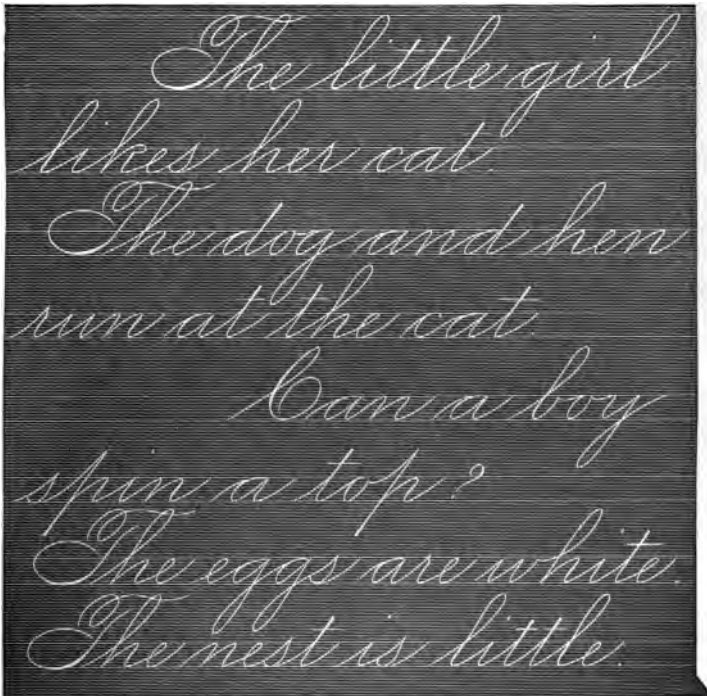 The little girl
likes her cat.
The dog and hen
run at the cat.
Can a boy
spin a top?
The eggs are white.
The nest is little.